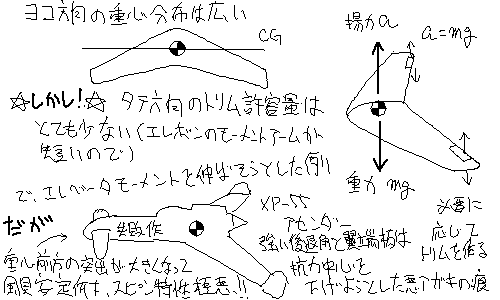 ヨコ方向の重心分布は広い
CG
☆しかし!☆ タテ方向のトリム許容量は
とても少ない(エレボンのモーメントアームが
短いので)
揚力a
a=mg
重力 mg
必要に
応じて
トリムを作る
で、エレベータモーメントを伸ばそうとした例
XP-55
アセンダー
強い後退角と翼端板は
抗力中心を
下げようとした悪アガキの痕
失敗作
だが
重心前方の突出が大きくなって
風見安定何す、スピン特性極悪!!